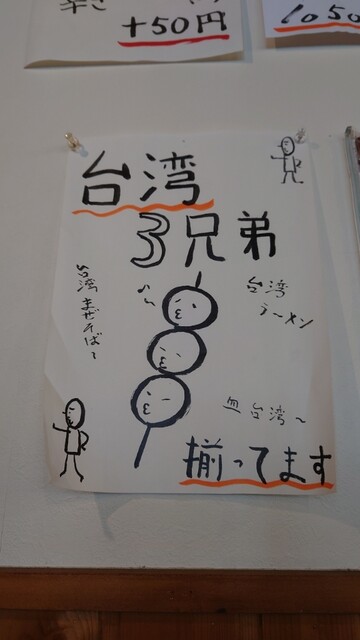 辛さ
+50円
1050
台湾
3兄弟
台湾まぜそば〜
台湾
ラーメン
台湾〜
揃ってます